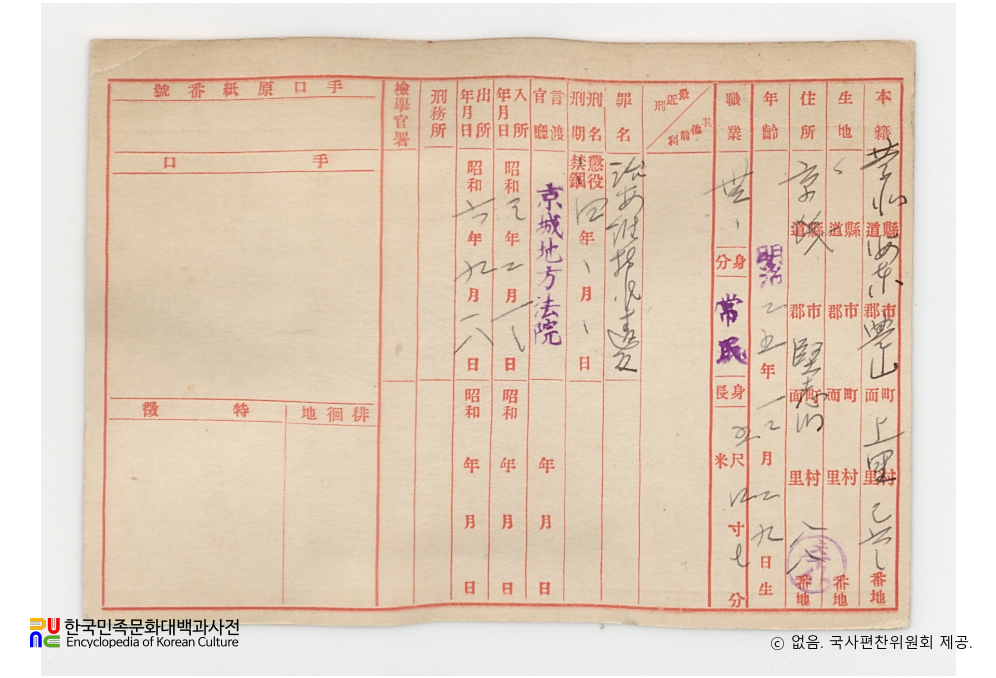 本籍 黃海 道縣 海东 郡市 豊山 面町 上里 里村 番地
生地 道縣 郡市 面町 里村 番地
住所 京城 道縣 郡市 堅志町 面町 里村 八八 番地
年齡 明治 二五年 一二月 二九日生
職業 無 身分 常民 身長 五尺 米 四寸 七分
最近刑 其他前科
罪名 治安維持法違反
刑名 刑期 懲役 禁錮 四年 、月 、日
言渡官廳 京城地方法院 年 月 日
入所年月日 昭和 三年 二月 日 昭和 年 月 日
出所年月日 昭和 六年 九月 一八日 昭和 年 月 日
刑務所
檢擧官署
手口原紙番號
手口
徘徊地
特徵
한국민족문화대백과사전
Encyclopedia of Korean Culture
ⓒ 없음. 국사편찬위원회 제공.